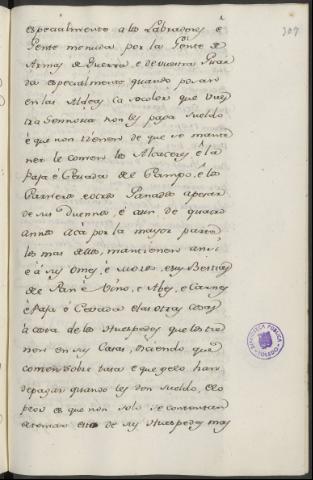 especialmente a los Labradores é
Gente menuda por la Gente de
Armas de Guerra, e de vuestra Guar
da especialmente quando posaro
en las Aldeas Ca so color que Vues
tra Sennoria non les paga sueldo
é que non tienen de que se mante
ner le comen los Alcaceres é la
Paja é Cevada del Campo, é los
Carneros, é otros Ganados apesar
de sus Duennos, é aun de quatro
annos acá por la mayor parte
los mas dellos, mantienen ansi
é á sus Omes, é Mozos, e sus Bestias
de Pan e Vino, e Abes, e Carnes
é Paja é Cevada e las otras cosas
á costa de los Huespedes que los tie
nen en sus Casas, diciendo que
comen sobre tasa e que gelo han
de pagar quando les den sueldo, e lo
peor es que non solo se contentan
e toman de sus Huespedes mas
307
BIBLIOTECA PUBLICA
TOLEDO